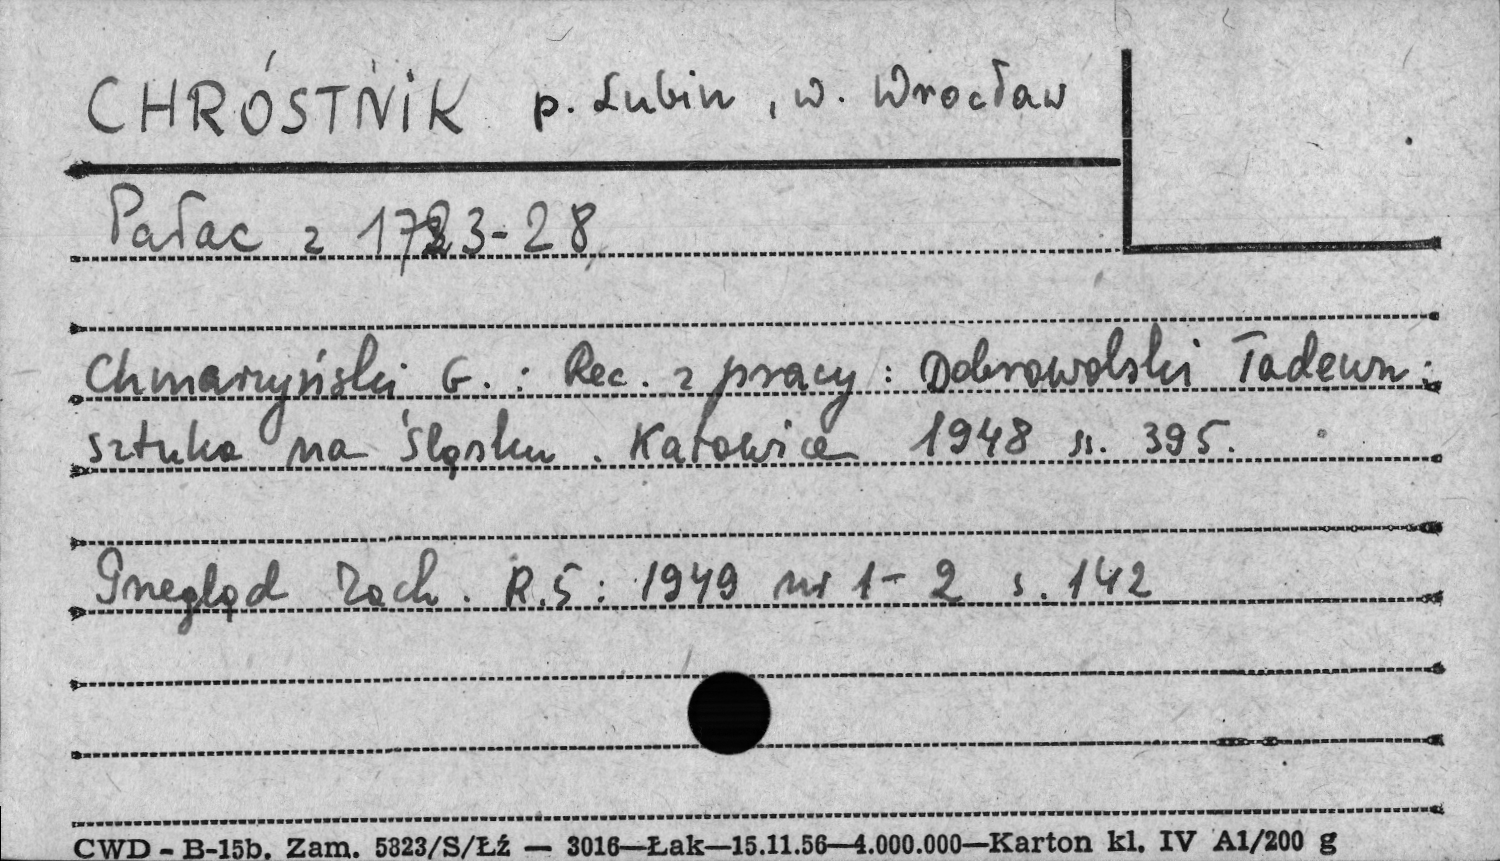 CHRÓSTNIK p. Lubin, w. Wrocław
Pałac z 1723-28
Chmarzyński G. : Rec. z pracy : Dobrowolski Tadeusz :
sztuka na Śląsku. Katowice 1948 ss. 395.
Przegląd Zach. R.5 : 1949 nr 1-2 s. 142
CWD - B-15b. Zam. 5823/S/Łź — 3016—Łak—15.11.56—4.000.000—Karton kl. IV A1/200 g